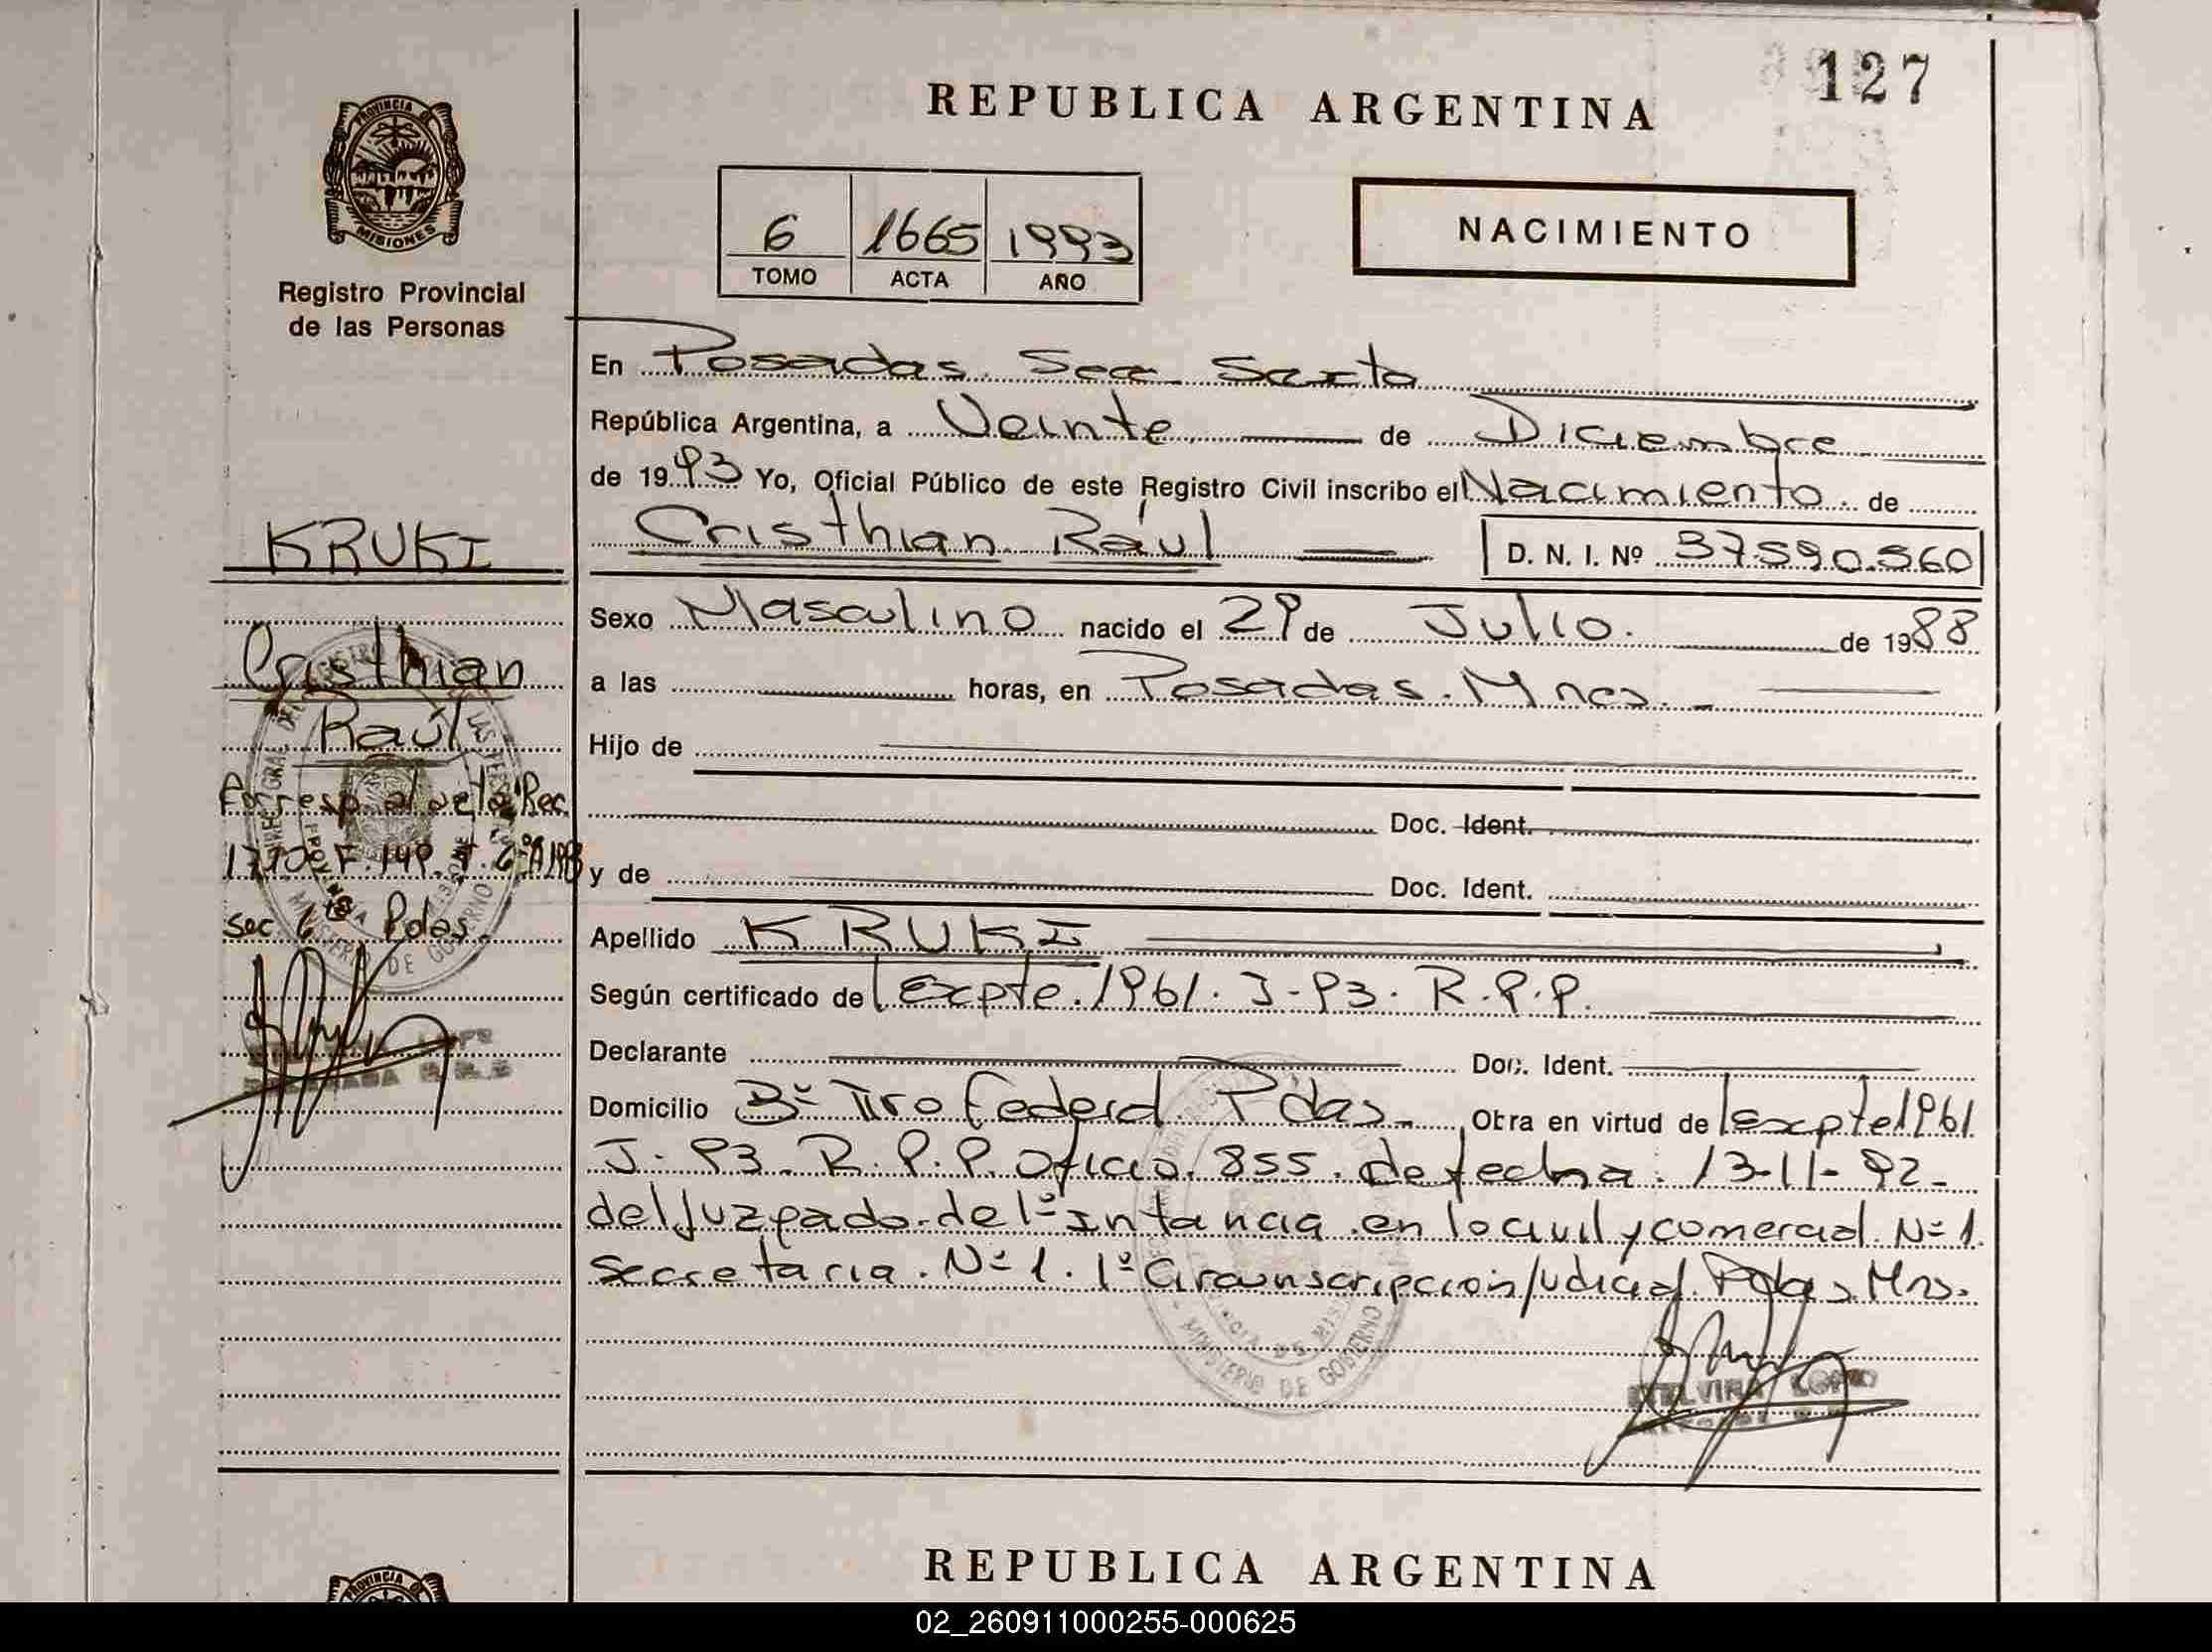 127
REPUBLICA ARGENTINA
PROVINCIA DE
MISIONES
Registro Provincial
de las Personas
6 1665 1993
TOMO ACTA AÑO
NACIMIENTO
En Posadas. Secc. Sexta
República Argentina, a Veinte de Diciembre
de 1993 Yo, Oficial Público de este Registro Civil inscribo el Nacimiento de
Cristhian Raúl D. N. I. Nº 37.590.560
Sexo Masculino nacido el 29 de Julio. de 1988
a las horas, en Posadas. Mnes.
Hijo de
Doc. Ident.
y de Doc. Ident.
Apellido KRUKI
Según certificado de Expte. 1961. J-93. R.P.P.
Declarante Doc. Ident.
Domicilio Bº Tiro Federal Pdas. Otra en virtud de expte 1961
J-93. R.P.P. oficio. 855. de fecha: 13-11-92-
del Juzgado de 1ª Intancia en lo civil y comercial Nº 1.
Secretaria. Nº 1. 1ª Circunscripción Judicial. Pdas. Mns.
KRUKI
Cristhian
Raúl
Corresp. al acta Rec.
1770 F. 149. T. 6º A 1993
sec 6ta Pdas.
MINISTERIO DE GOBIERNO
MINISTERIO DE GOBIERNO
REPUBLICA ARGENTINA
PROVINCIA DE
02_260911000255-000625